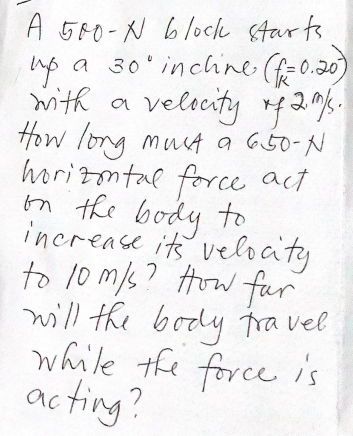 A 500-N block starts
up a 30° incline (fk=0.20)
with a velocity of 2 m/s.
How long must a 650-N
horizontal force act
on the body to
increase its velocity
to 10 m/s? How far
will the body travel
while the force is
acting?